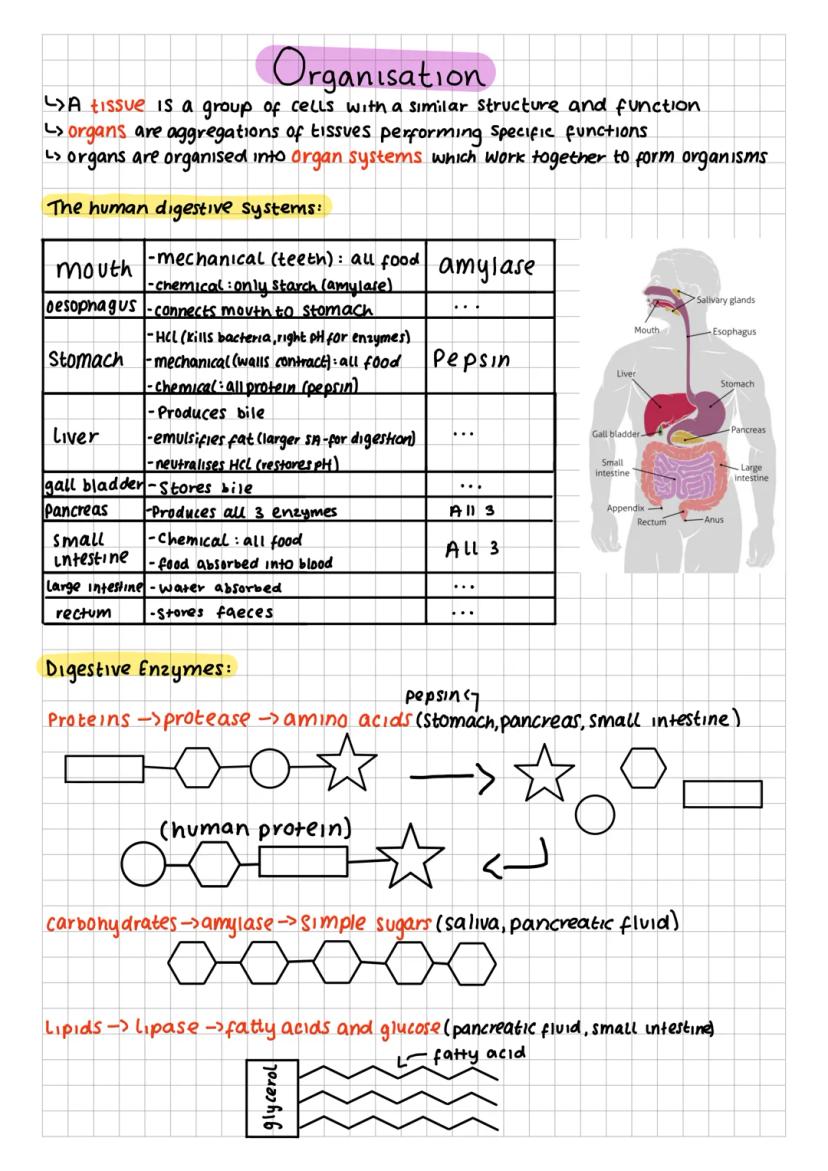 Organisation
↳ A tissue is a group of cells with a similar structure and function
↳ organs are aggregations of tissues performing specific functions
↳ organs are organised into organ systems which work together to form organisms
The human digestive systems:
mouth
-mechanical (teeth) : all food
-chemical : only starch (amylase)
amylase
oesophagus
-connects mouth to stomach
...
Stomach
-HCl (kills bacteria, right pH for enzymes)
-mechanical (walls contract) : all food
-chemical : all protein (pepsin)
Pepsin
Liver
-Produces bile
-emulsifies fat (larger SA-for digestion)
-neutralises HCl (restores pH)
...
gall bladder
-Stores bile
...
Pancreas
-Produces all 3 enzymes
All 3
Small
intestine
-Chemical : all food
-food absorbed into blood
All 3
large intestine
-water absorbed
...
rectum
-Stores faeces
...
Salivary glands
Mouth
Esophagus
Liver
Stomach
Gall bladder
Pancreas
Small
intestine
Large
intestine
Appendix
Rectum
Anus
Digestive Enzymes:
pepsin
Proteins → protease → amino acids (stomach, pancreas, small intestine)
(human protein)
carbohydrates → amylase → simple sugars (saliva, pancreatic fluid)
Lipids → lipase → fatty acids and glucose (pancreatic fluid, small intestine)
fatty acid
glycerol